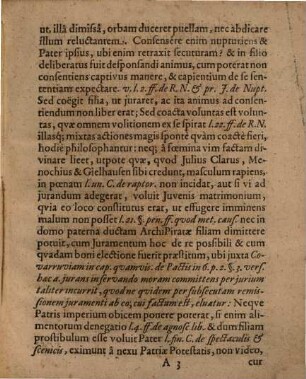 ut, illâ dimissâ, orbam duceret puellam, nec abdicare
illum reluctantem. Consensêre enim nupturiens &
Pater ipsius, ubi enim retraxit secuturam? & in filio
deliberatus fuit desponsandi animus, cum poterat non
consentiens captivus manere, & capientium de se sen-
tentiam expectare. v. l. 22. ff. de R. N. & pr. J. de Nupt.
Sed coëgit filia, ut juraret, ac ita animus ad consen-
tiendum non liber erat; Sed coacta voluntas est volun-
tas, quæ omnem volitionem ex se spirat l. 22. ff. de R. N.
illasq; mixtas actiones magis sponte quàm coactè fieri,
hodie philosophantur: neq; à fœmina vim factam di-
vinare licet, utpote quæ, quod Julius Clarus, Me-
nochius & Gielhausen sibi credunt, masculum rapiens,
in pœnam l. un. C. de raptor. non incidat, aut si vi ad
jurandum adegerat, voluit Juvenis matrimonium;
quia eo loco constitutus erat, ut effugere imminens
malum non posset l. 21. §. pen. ff. quod met. caus. nec in
domo paterna ductam ArchiPiratæ filiam dimittere
potuit, cum Juramentum hoc de re possibili & cum
quadam boni electione fuerit præstitum, ubi juxta Co-
varruviam in cap. quamvis. de Pactis in 6. p. 2. §. 7. vers.
hac a. jurans in servando moram committens perjurium
taliter incurrit, quod ne quidem per subsecutam remis-
sionem juramenti ab eo, cui factum est, eluatur: Neqve
Patris imperium obicem ponere poterat, si enim ali-
mentorum denegatio l. 4. ff. de agnosc. lib. & dum filiam
prostibulum esse voluit Pater l. fin. C. de spectaculis &
scenicis, eximunt à nexu Patriæ Potestatis, non video,
A 3 cur